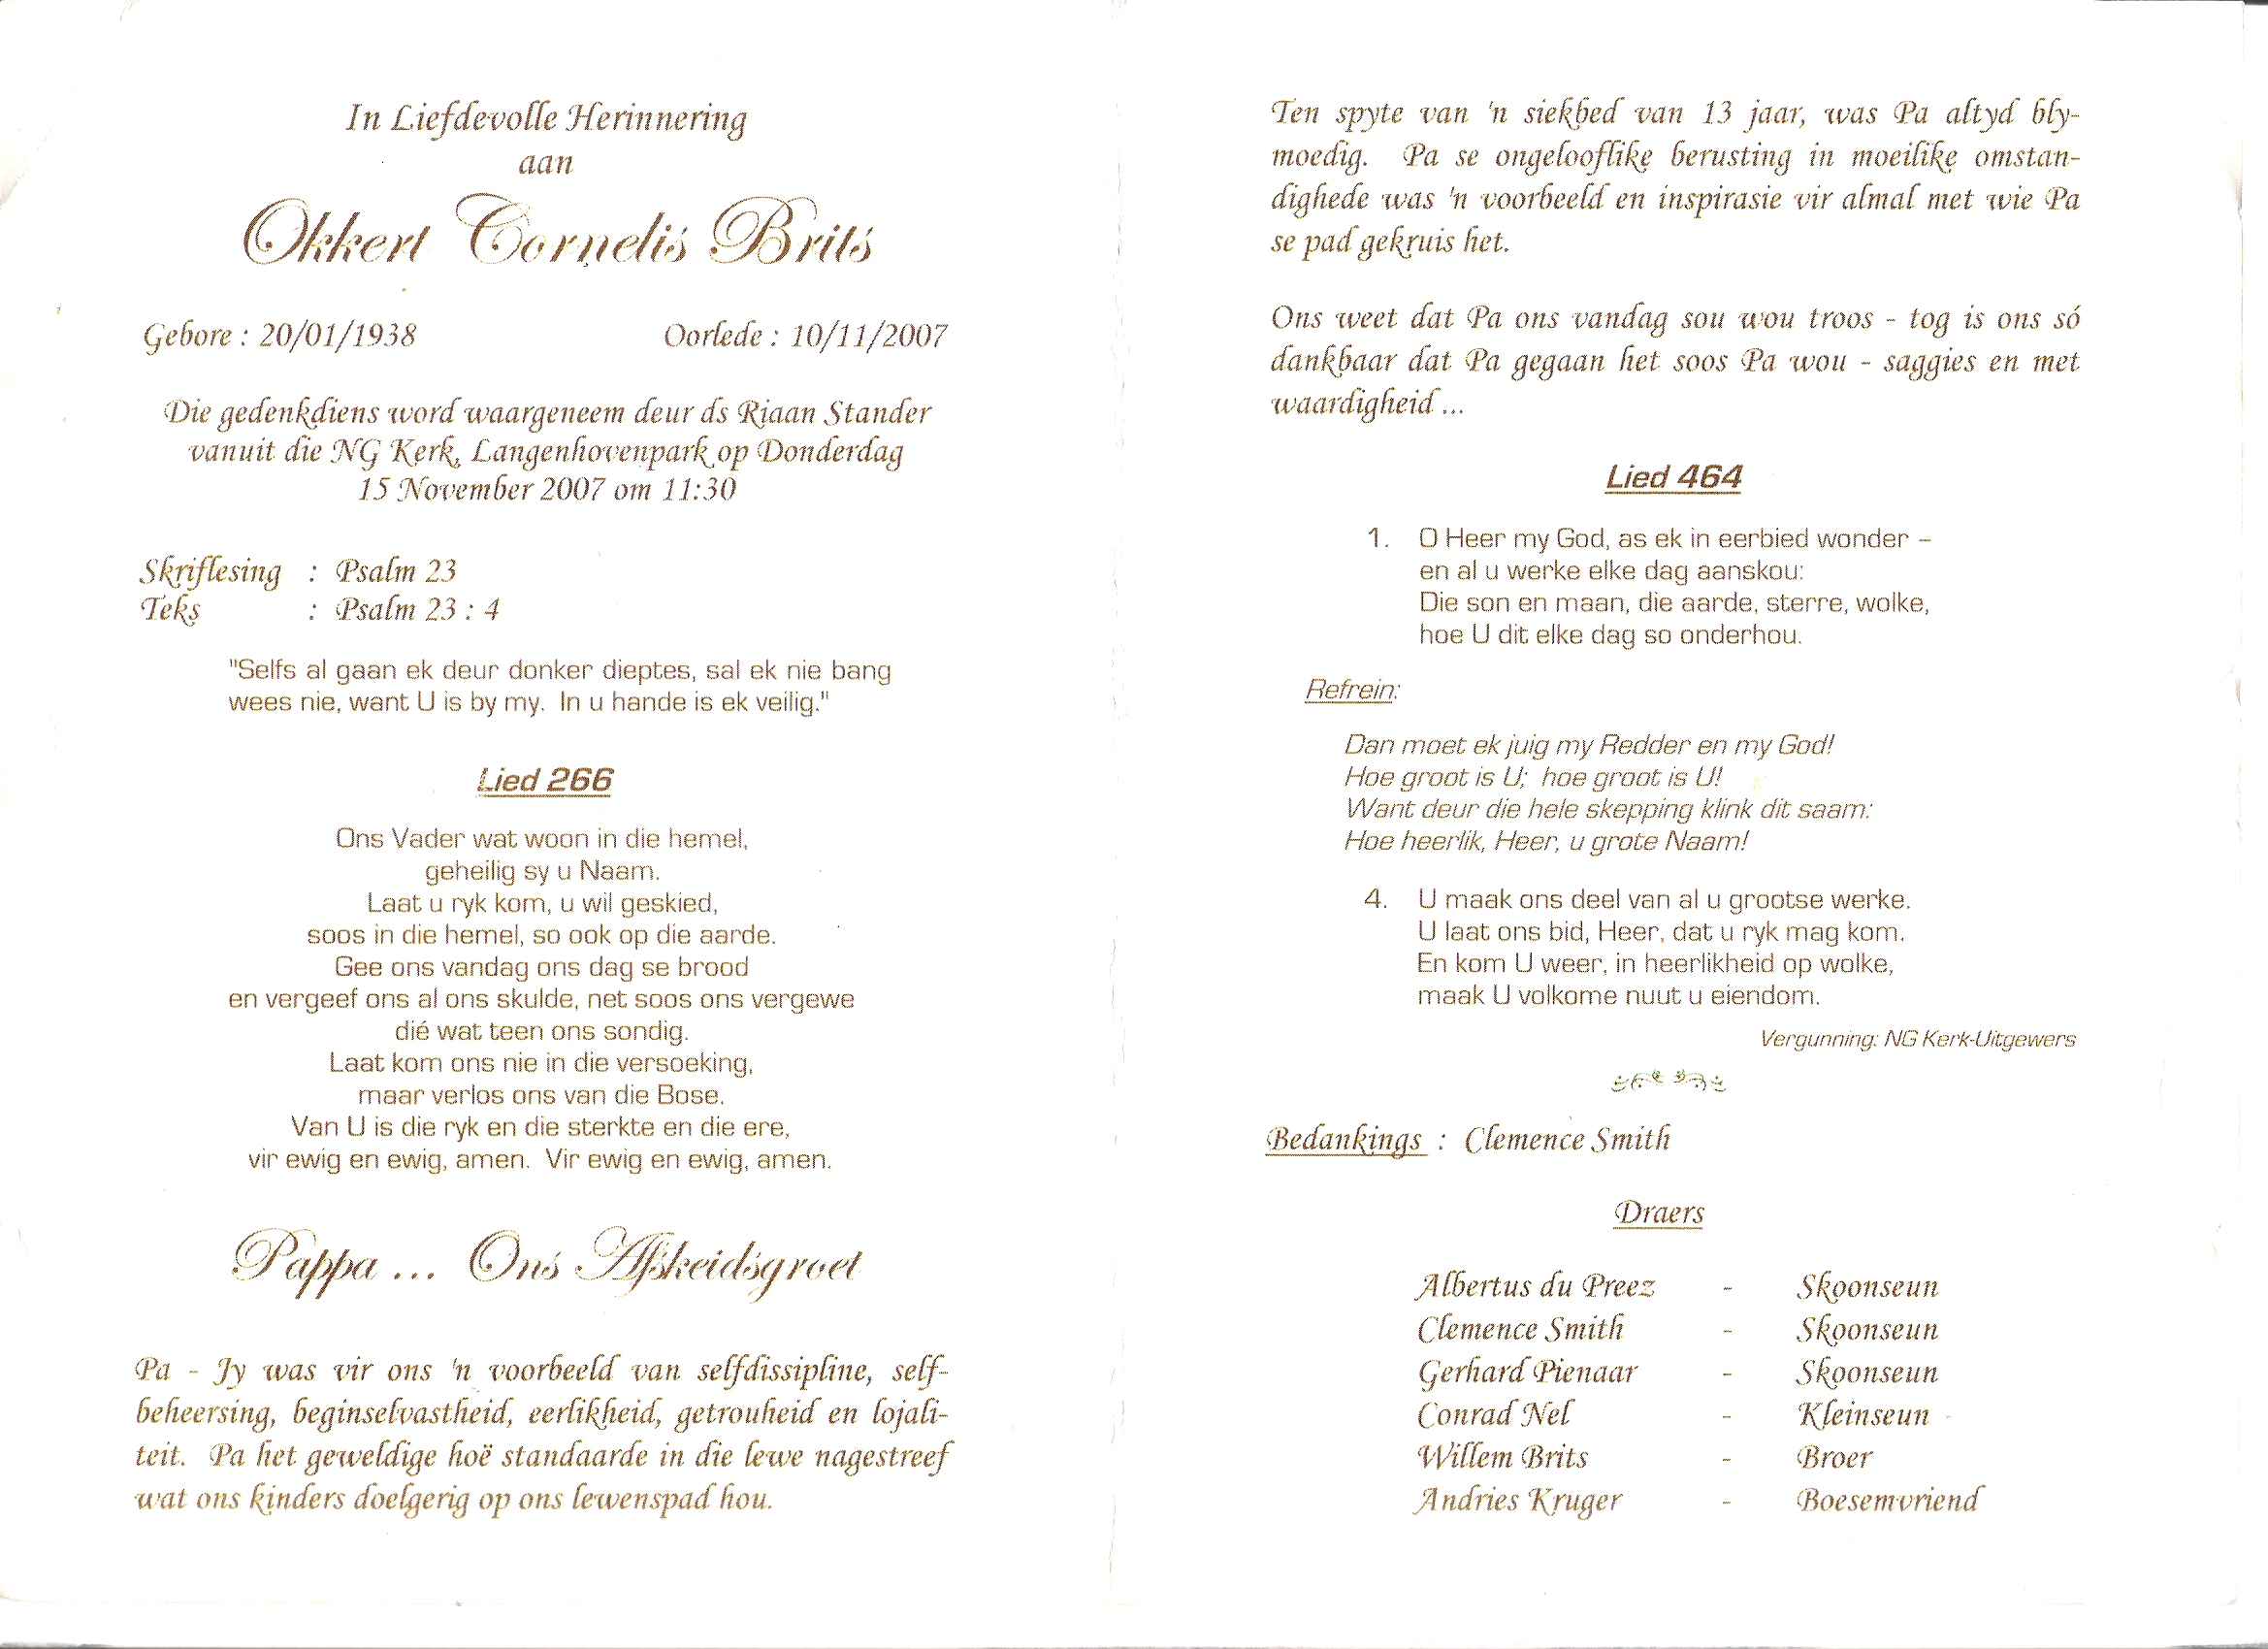 In Liefdevolle Herinnering
aan
Okkert Cornelis Brits
Gebore : 20/01/1938 Oorlede : 10/11/2007
Die gedenkdiens word waargeneem deur ds Riaan Stander
vanuit die NG Kerk, Langenhovenpark op Donderdag
15 November 2007 om 11:30
Skriflesing : Psalm 23
Teks : Psalm 23 : 4
"Selfs al gaan ek deur donker dieptes, sal ek nie bang
wees nie, want U is by my. In u hande is ek veilig."
Lied 266
Ons Vader wat woon in die hemel,
geheilig sy u Naam.
Laat u ryk kom, u wil geskied,
soos in die hemel, so ook op die aarde.
Gee ons vandag ons dag se brood
en vergeef ons al ons skulde, net soos ons vergewe
dié wat teen ons sondig.
Laat kom ons nie in die versoeking,
maar verlos ons van die Bose.
Van U is die ryk en die sterkte en die ere,
vir ewig en ewig, amen. Vir ewig en ewig, amen.
Pappa ... Ons Afskeidsgroet
Pa - Jy was vir ons 'n voorbeeld van selfdissipline, self-
beheersing, beginselvastheid, eerlikheid, getrouheid en lojali-
teit. Pa het geweldige hoë standaarde in die lewe nagestreef
wat ons kinders doelgerig op ons lewenspad hou.
Ten spyte van 'n siekbed van 13 jaar, was Pa altyd bly-
moedig. Pa se ongelooflike berusting in moeilike omstan-
dighede was 'n voorbeeld en inspirasie vir almal met wie Pa
se pad gekruis het.
Ons weet dat Pa ons vandag sou wou troos - tog is ons só
dankbaar dat Pa gegaan het soos Pa wou - saggies en met
waardigheid ...
Lied 464
1. O Heer my God, as ek in eerbied wonder –
en al u werke elke dag aanskou:
Die son en maan, die aarde, sterre, wolke,
hoe U dit elke dag so onderhou.
Refrein:
Dan moet ek juig my Redder en my God!
Hoe groot is U; hoe groot is U!
Want deur die hele skepping klink dit saam:
Hoe heerlik, Heer, u grote Naam!
4. U maak ons deel van al u grootse werke.
U laat ons bid, Heer, dat u ryk mag kom.
En kom U weer, in heerlikheid op wolke,
maak U volkome nuut u eiendom.
Vergunning: NG Kerk-Uitgewers
Bedankings : Clemence Smith
Draers
Albertus du Preez - Skoonseun
Clemence Smith - Skoonseun
Gerhard Pienaar - Skoonseun
Conrad Nel - Kleinseun
Willem Brits - Broer
Andries Kruger - Boesemvriend